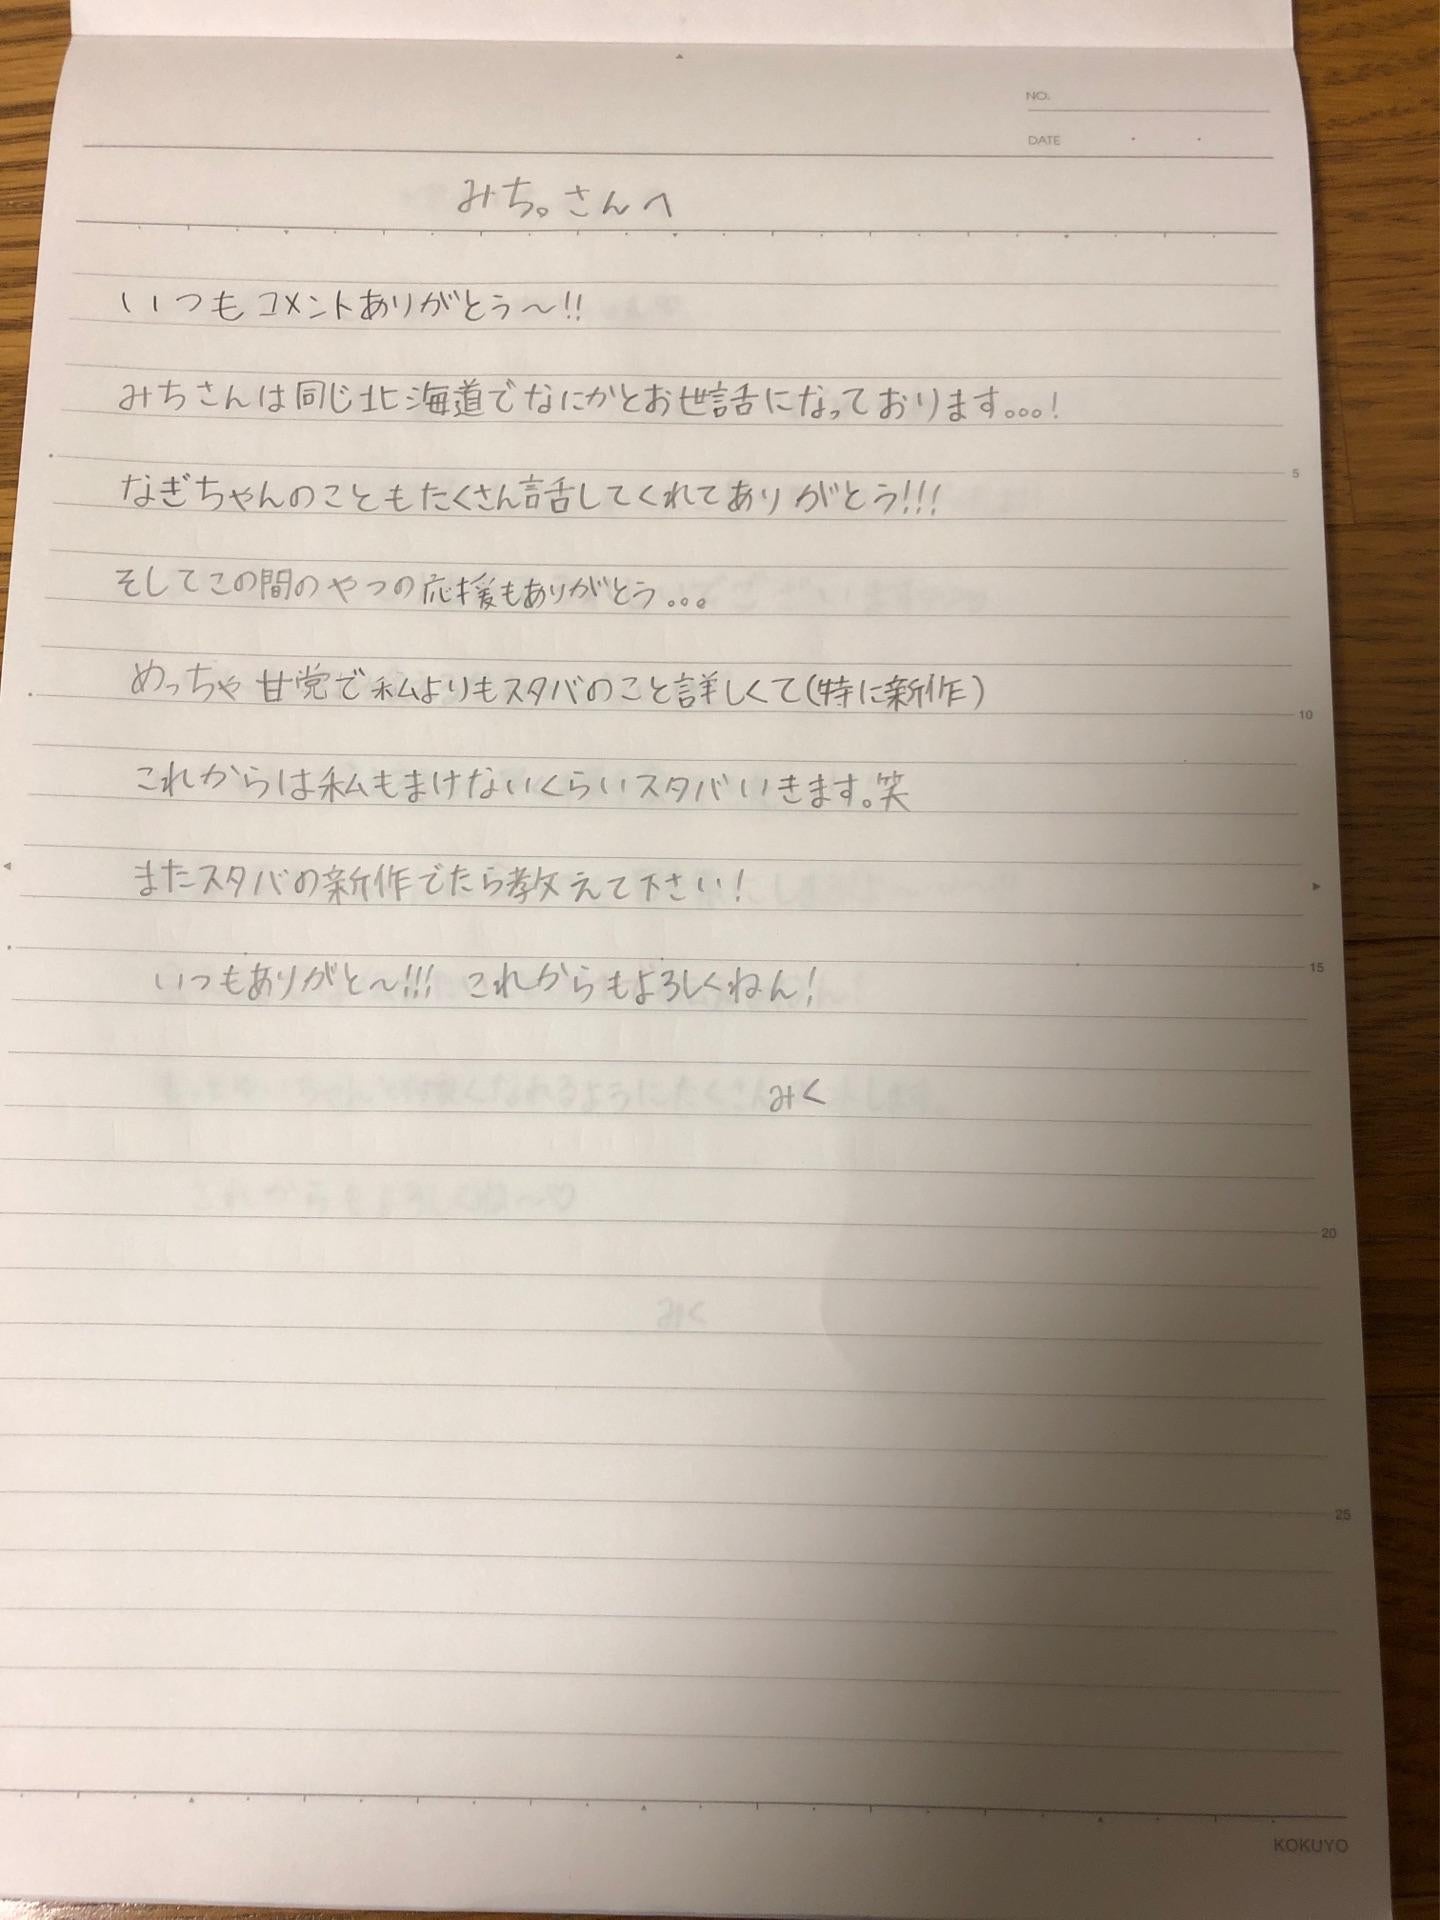 NO.
DATE
みち。さんへ
いつもコメントありがとう〜!!
みちさんは同じ北海道でなにかとお世話になっております。。。!
5
なぎちゃんのこともたくさん話してくれてありがとう!!!
そしてこの間のやつの応援もありがとう。。。
めっちゃ甘党で私よりもスタバのこと詳しくて(特に新作)
10
これからは私もまけないくらいスタバいきます。笑
またスタバの新作でたら教えて下さい!
15
いつもありがと〜!!! これからもよろしくねん!
みく
これからもよろしくね〜♡
20
みく
25
KOKUYO